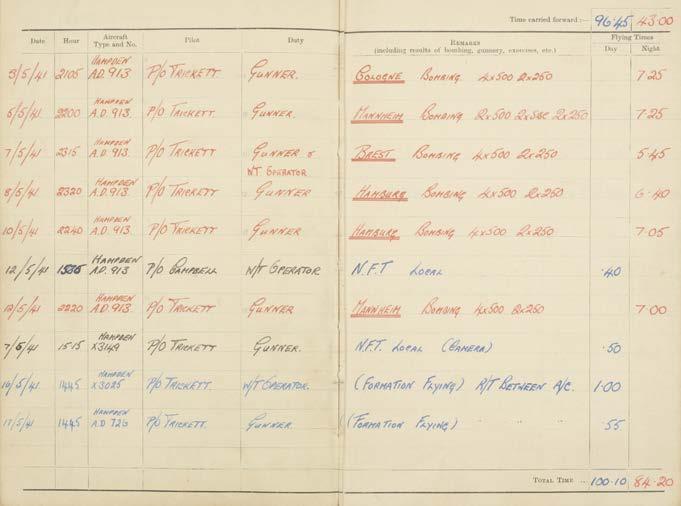 Time carried forward :— 96·45 43·00
Date Hour Aircraft Type and No. Pilot Duty Remarks (including results of bombing, gunnery, exercises, etc.) Flying Times Day Night
3/5/41 2105 Hampden A.D. 913 P/O Trickett Gunner. Cologne Bombing 4x500 2x250 7·25
5/5/41 2200 Hampden A.D. 913. P/O Trickett. Gunner. Mannheim Bombing 2x500 2x250 7·25
7/5/41 2315 Hampden A.D. 913. P/O Trickett Gunner & W.T. Operator Brest Bombing 4x500 2x250 5·45
8/5/41 2320 Hampden A.D. 913. P/O Trickett Gunner Hamburg Bombing 4x500 2x250 6·40
10/5/41 2240 Hampden A.D. 913. P/O Trickett Gunner Hamburg Bombing 4x500 2x250 7·05
12/5/41 Hampden A.D. 913 P/O Campbell W/T Operator N.F.T Local ·40
12/5/41 2220 Hampden A.D. 913. P/O Trickett Gunner Mannheim Bombing 4x500 2x250 7·00
1515 Hampden X3149 P/O Trickett Gunner. N.F.T. Local (Camera) ·50
16/5/41 1445 Hampden X3025 P/O Trickett. W/T Operator. (Formation Flying) R/T Between A/C. 1·00
17/5/41 1445 Hampden A.D 726 P/O Trickett. Gunner. (Formation Flying) " " " ·55
Total Time ... 100·10 84·20